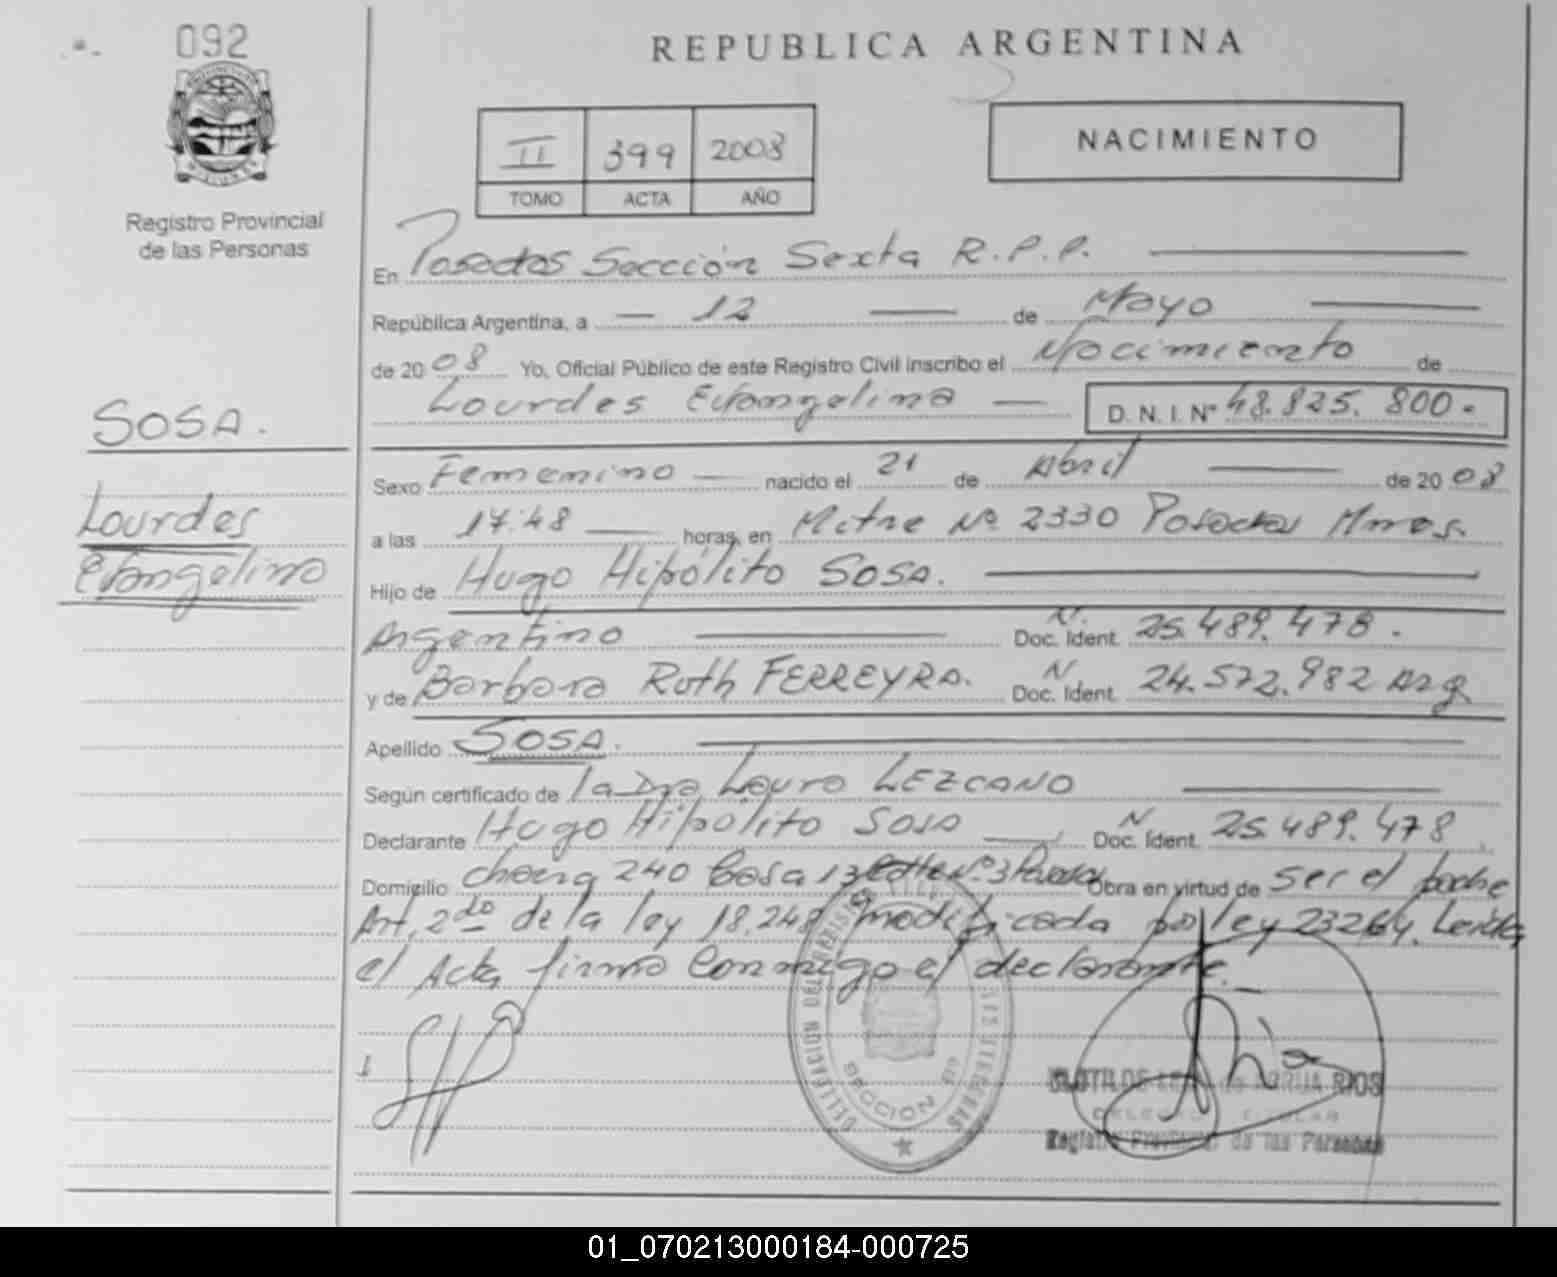 092
REPUBLICA ARGENTINA
Registro Provincial
de las Personas
II 399 2008
TOMO ACTA AÑO
NACIMIENTO
En Posadas Sección Sexta R.P.P.
República Argentina, a 12 de Mayo
de 2008 Yo, Oficial Público de este Registro Civil Inscribo el Nacimiento de
Lourdes Evangelina D. N. I. Nº 48.825.800.
SOSA.
Lourdes
Evangelina
Sexo Femenino nacido el 21 de Abril de 2008
a las 17:48 horas, en Mitre Nº 2330 Posadas Mnes.
Hijo de Hugo Hipólito SOSA.
Argentino N. Doc. Ident. 25.489.478.
y de Barbara Ruth FERREYRA. N Doc. Ident. 24.572.982 Arg
Apellido SOSA.
Según certificado de la Dra Laura LEZCANO
Declarante Hugo Hipólito Sosa N Doc. Ident. 25.489.478.
Domicilio 240 Casa 13 Nº 3 Obra en virtud de ser el padre
Art. 2do de la ley 18.248 modificada por ley 23264. Leída
el Acta, firma conmigo el declarante.
DELEGACION DEL REGISTRO
SECCION 6ª
CLOTILDE ARRUA RIOS
DELEGADA TITULAR
Registro Provincial de las Personas
01_070213000184-000725